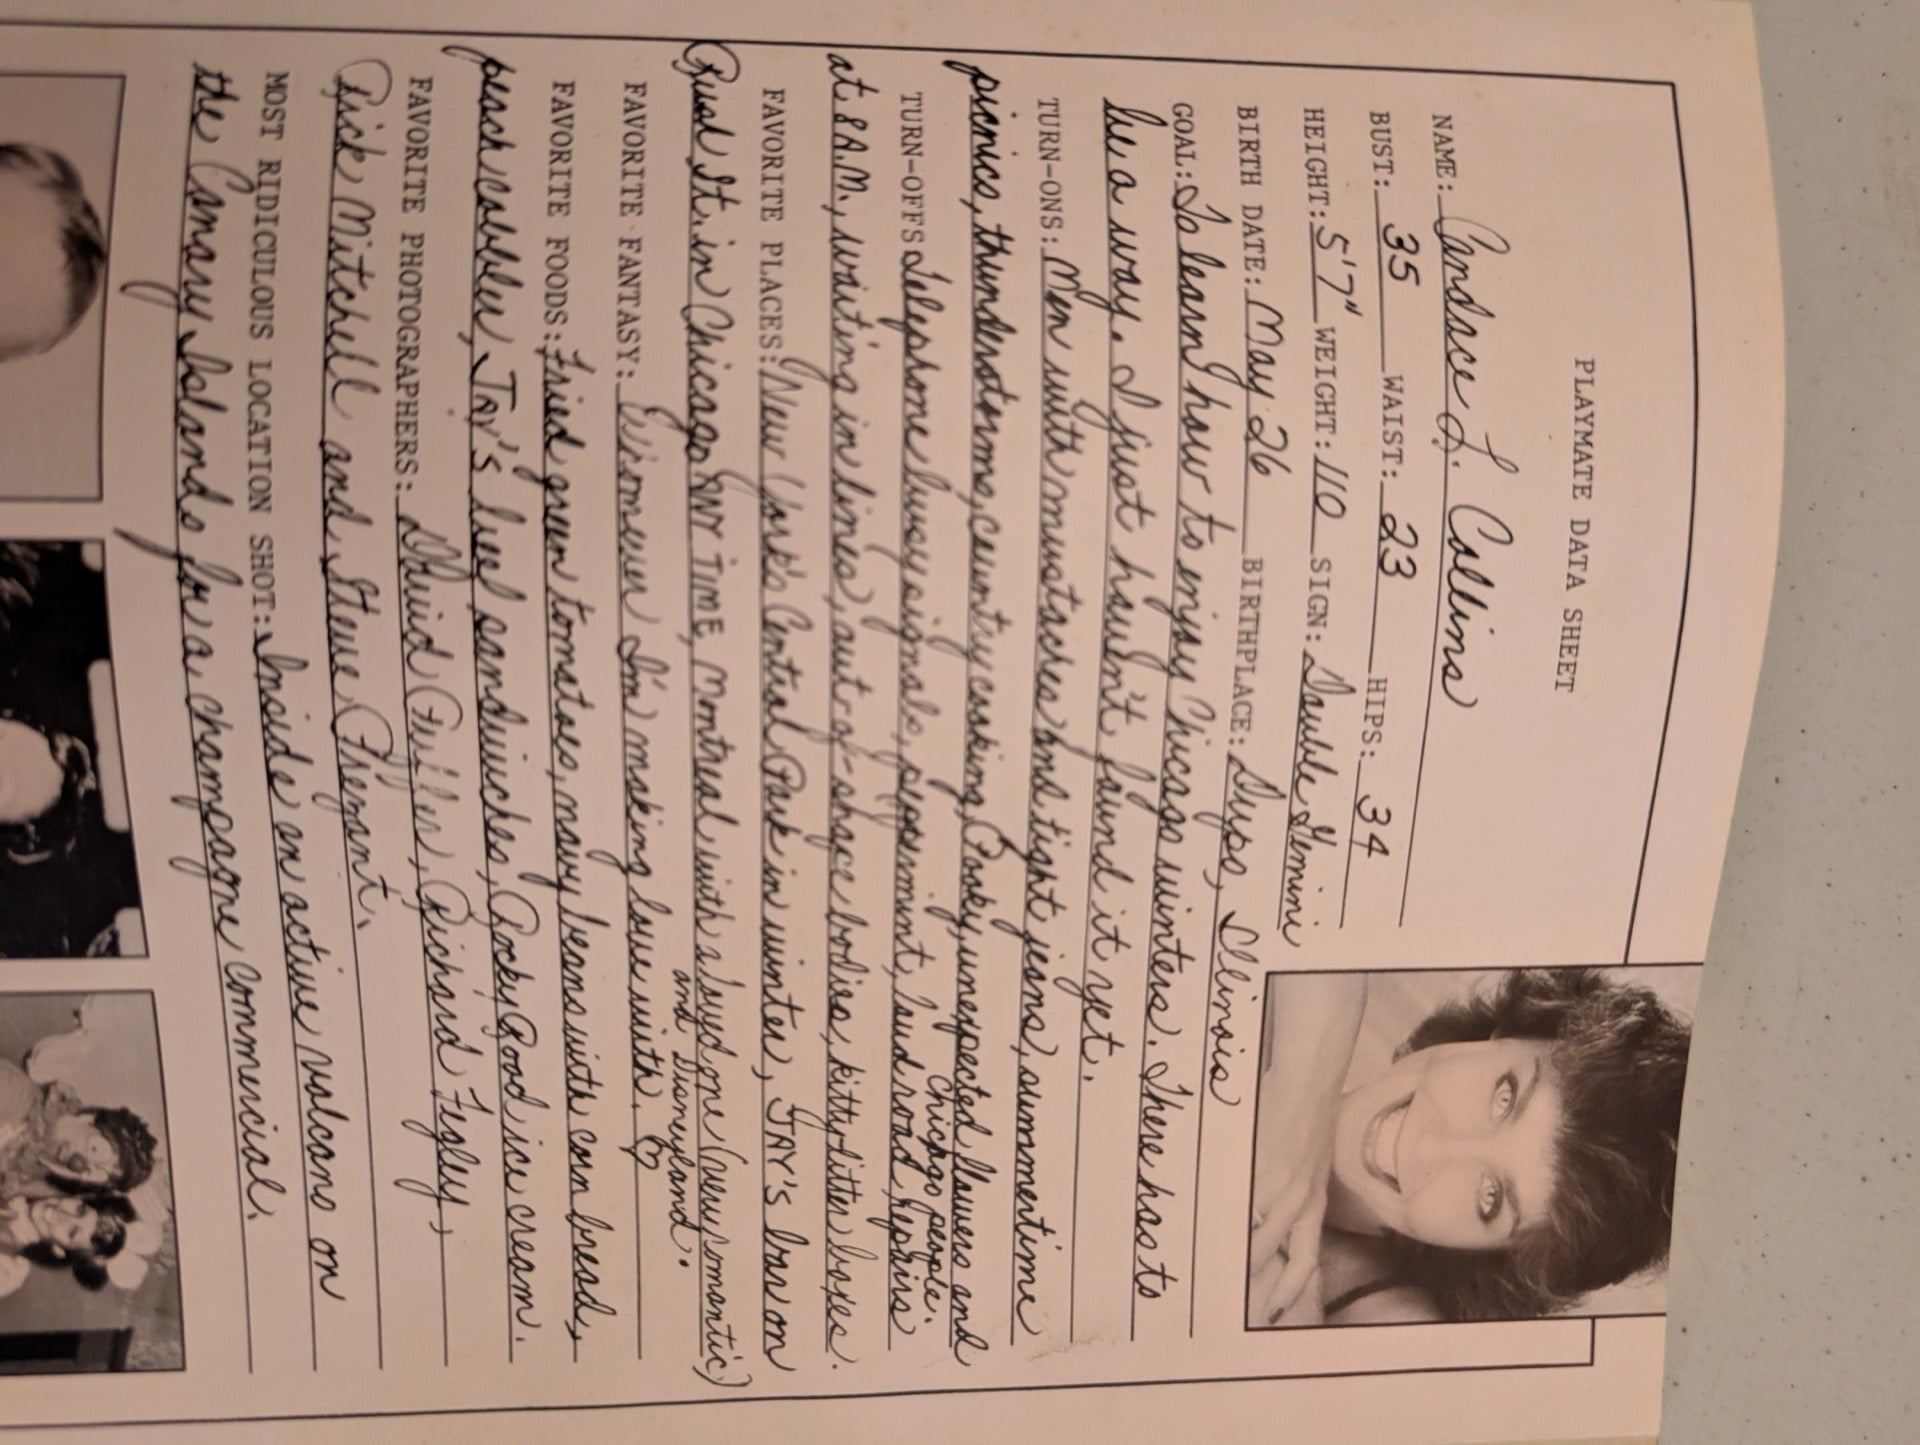 PLAYMATE DATA SHEET
NAME: Candace L. Collins
BUST: 35 WAIST: 23 HIPS: 34
HEIGHT: 5'7" WEIGHT: 110 SIGN: Double Gemini
BIRTH DATE: May 26 BIRTHPLACE: Dupo, Illinois
GOAL: To learn how to enjoy Chicago winters. There has to
be a way. I just haven't found it yet.
TURN-ONS: Men with mustaches and tight jeans, summertime
picnics, thunderstorms, country cooking, Pooky, unexpected flowers and
Chicago people.
TURN-OFFS Telephone busy signals, peppermint, loud road repairs
at 8 A.M., waiting in lines, out-of-shape bodies, kitty-litter boxes.
FAVORITE PLACES: New York's Central Park in winter, JAY'S bar on
Rush St. in Chicago ANY TIME, Montreal with a loved one (very romantic)
and Disneyland.
FAVORITE FANTASY: Whomever I'm making love with. ♡
FAVORITE FOODS: Fried green tomatoes, navy beans with corn bread,
peach cobbler, JAY'S beef sandwiches, Rocky Road ice cream.
FAVORITE PHOTOGRAPHERS: Richard Fegley,
Rick Mitchell and Steve
MOST RIDICULOUS LOCATION SHOT: Inside an active volcano on
the Canary Islands for a champagne commercial.